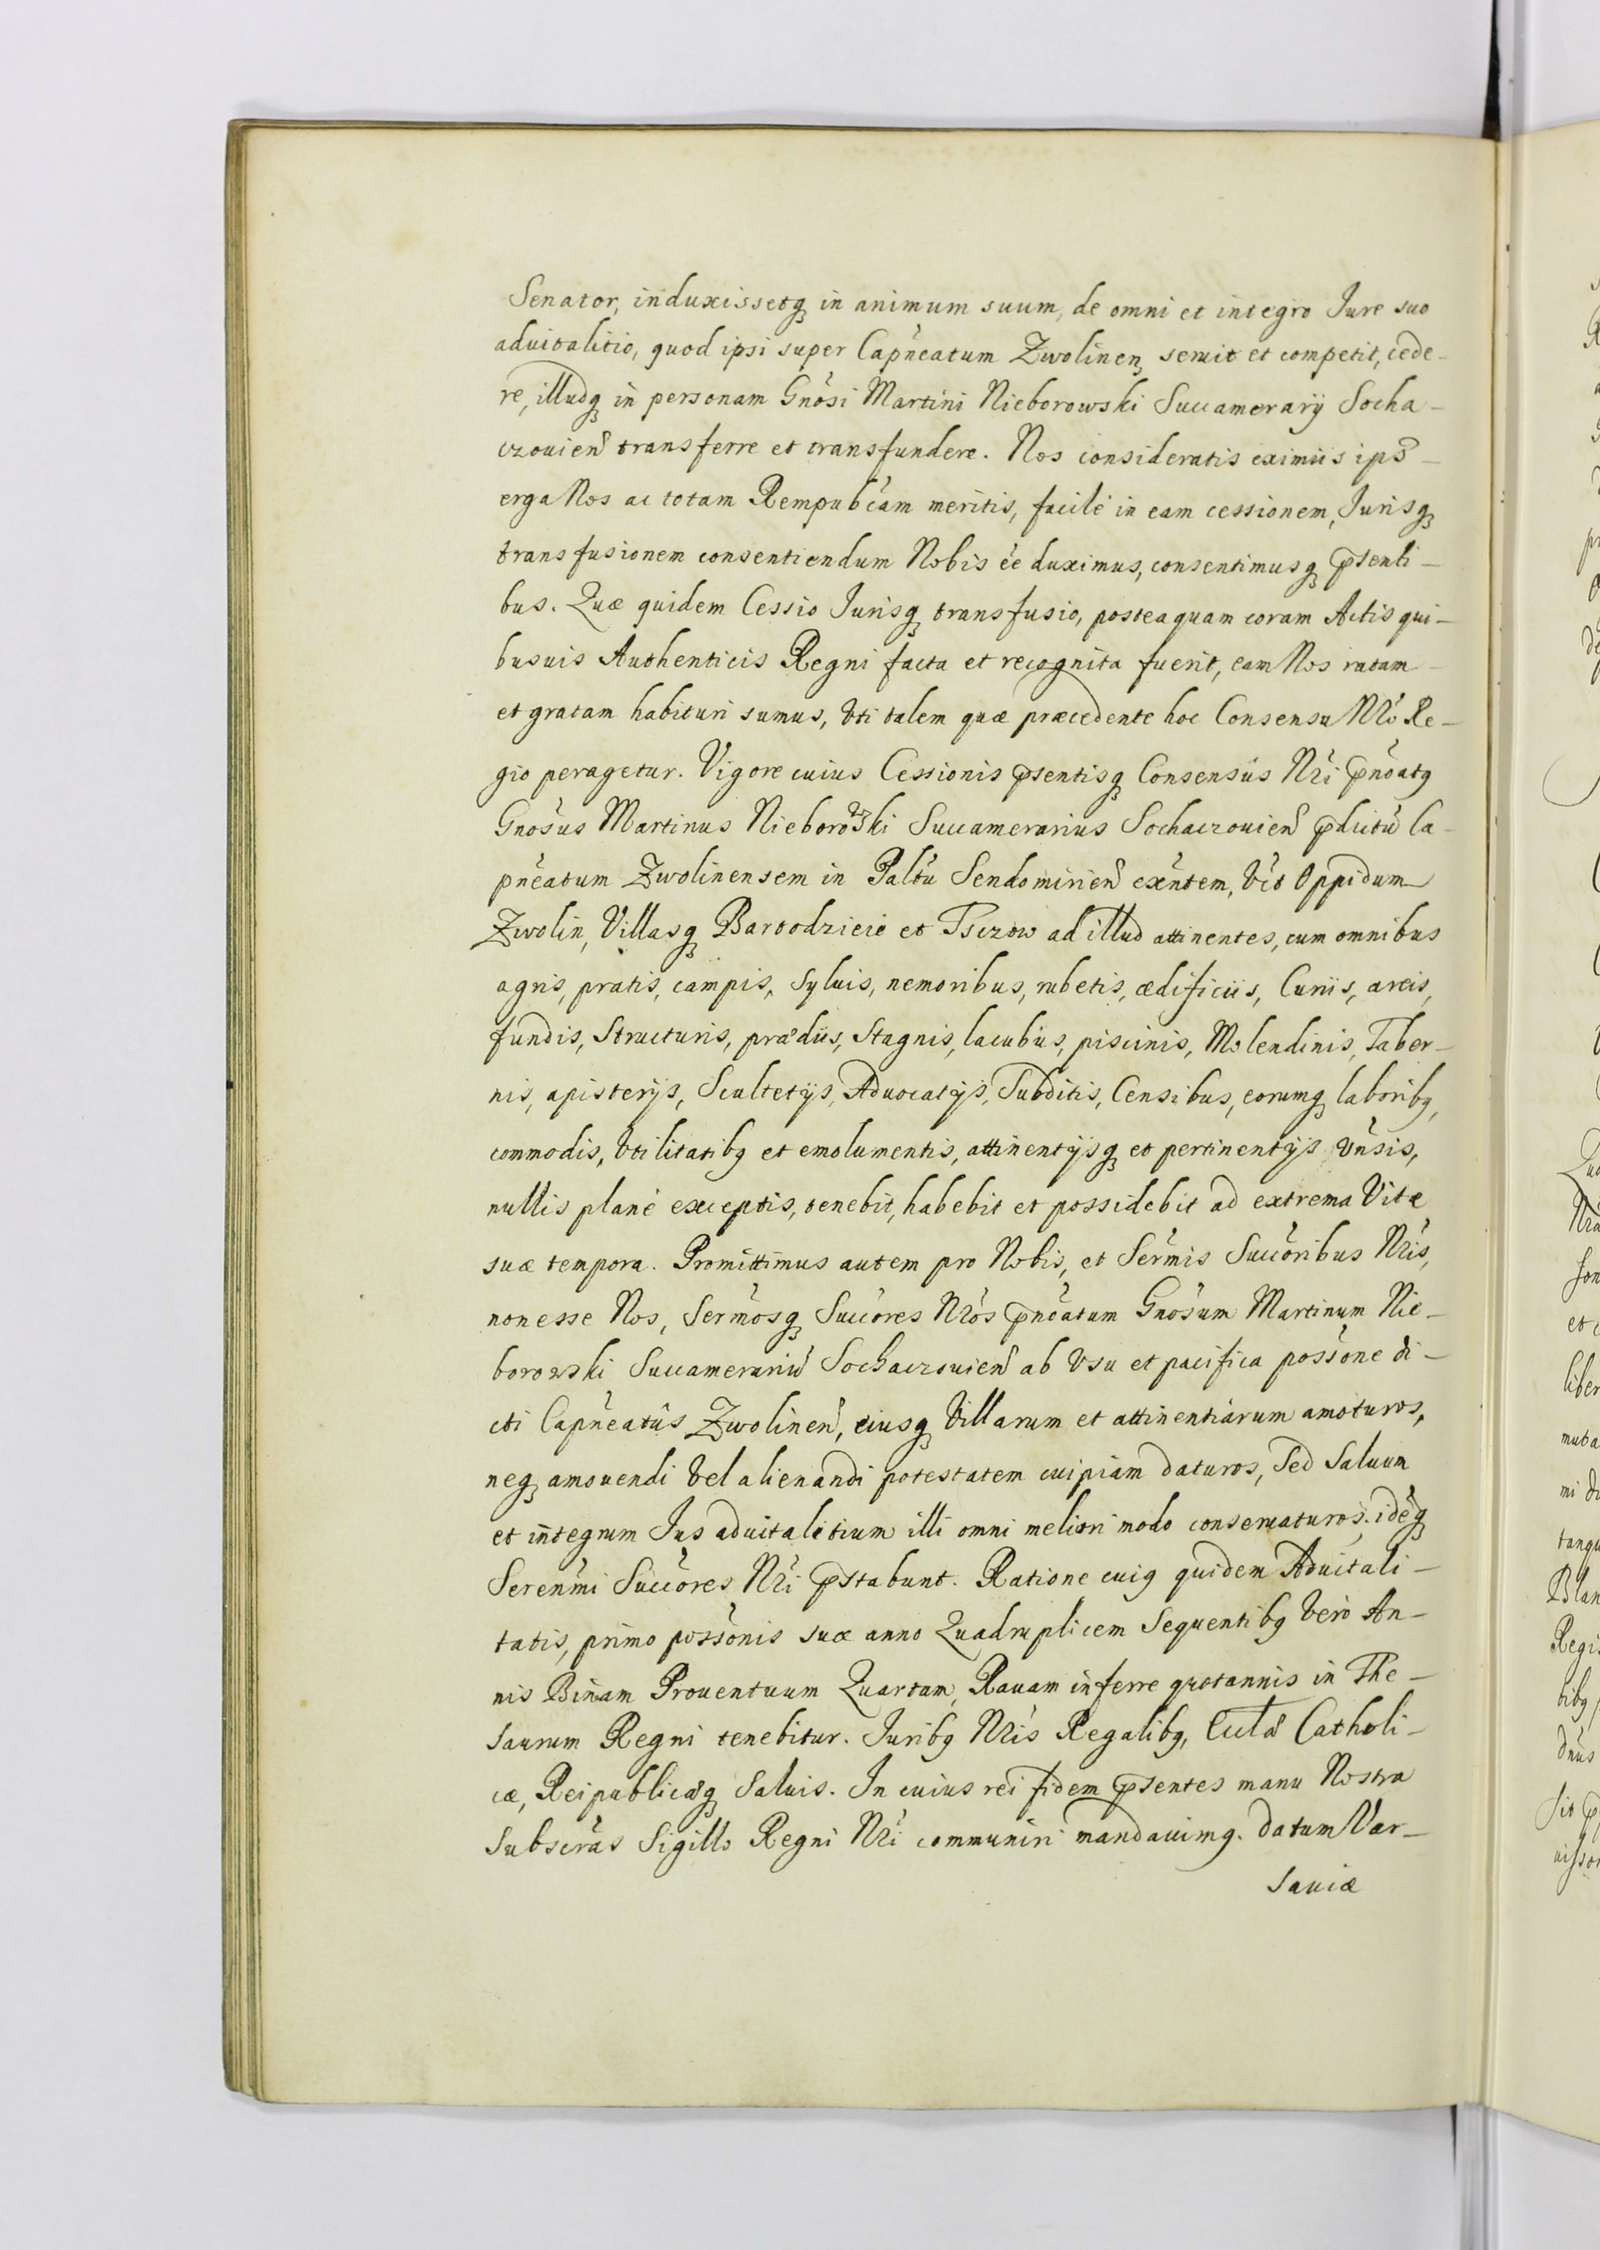 Senator, induxissetq; in animum suum, de omni et integro Jure suo
aduitalitio, quod ipsi super Capneatum Zwolinen, seruit et competit, cede-
re, illudq; in personam Gnosi Martini Nieborowski Succamerarij Socha-
czouien transferre et transfundere. Nos consideratis eximiis ips
erga Nos ac totam Rempubcam meritis, facile in eam cessionem, Jurisq;
transfusionem consentiendum Nobis ee duximus, consentimusq; psenti-
bus. Quæ quidem Cessio Jurisq; transfusio, posteaquam coram Actis qui-
busuis Authenticis Regni facta et recognita fuerit, eam Nos ratam
et gratam habituri sumus, Vti talem quæ præcedente hoc Consensu Nro Re-
gio peragetur. Vigore cuius Cessionis psentisq; Consensus Nri pnoatg
Gnosus Martinus Nieborowski Succamerarius Sochaczouien pdictu Ca-
pneatum Zwolinensem in Paltu Sendomirien exntem, Vct Oppidum
Zwolin, Villasq; Bartodzieie et Tsczow ad illud attinentes, cum omnibus
agris, pratis, campis, syluis, nemoribus, rubetis, ædificiis, Curiis, areis,
fundis, Structuris, prædiis, Stagnis, lacubus, piscinis, Molendinis, Taber-
nis, apisterijs, Scultetijs, Aduocatijs, Subditis, Censibus, eorumq; laboribg,
commodis, Vtilitatibg et emolumentis, attinentijsq; et pertinentijs Vnsis,
nullis planè exceptis, tenebit, habebit et possidebit ad extrema Vitæ
suæ tempora. Promittimus autem pro Nobis, et Sermis Succoribus Nris,
non esse Nos, Sermosq; Succores Nros pnoatum Gnosum Martinum Nie-
borowski Succamerariu Sochaczouien ab Vsu et pacifica possone di-
cti Capneatus Zwolinen, eiusq; Villarum et attinentiarum amoturos,
neq; amouendi Vel alienandi potestatem cuipiam daturos, Sed Saluum
et integrum Jus aduitalitium illi omni meliori modo conseruaturos, ideq;
Serenmi Succores Nri pstabunt. Ratione cuig quidem Aduitali-
tatis, primo possonis suæ anno Quadruplicem Sequentibg Vero An-
nis Binam Prouentuum Quartam, Rauam inferre quotannis in The-
saurum Regni tenebitur. Juribg Nris Regalibg, Ecclæ Catholi-
cæ, Reipublicæq; Saluis. In cuius rei fidem psentes manu Nostra
Subscras Sigillo Regni Nri communiri mandauimg. Datum Var-
sauiæ